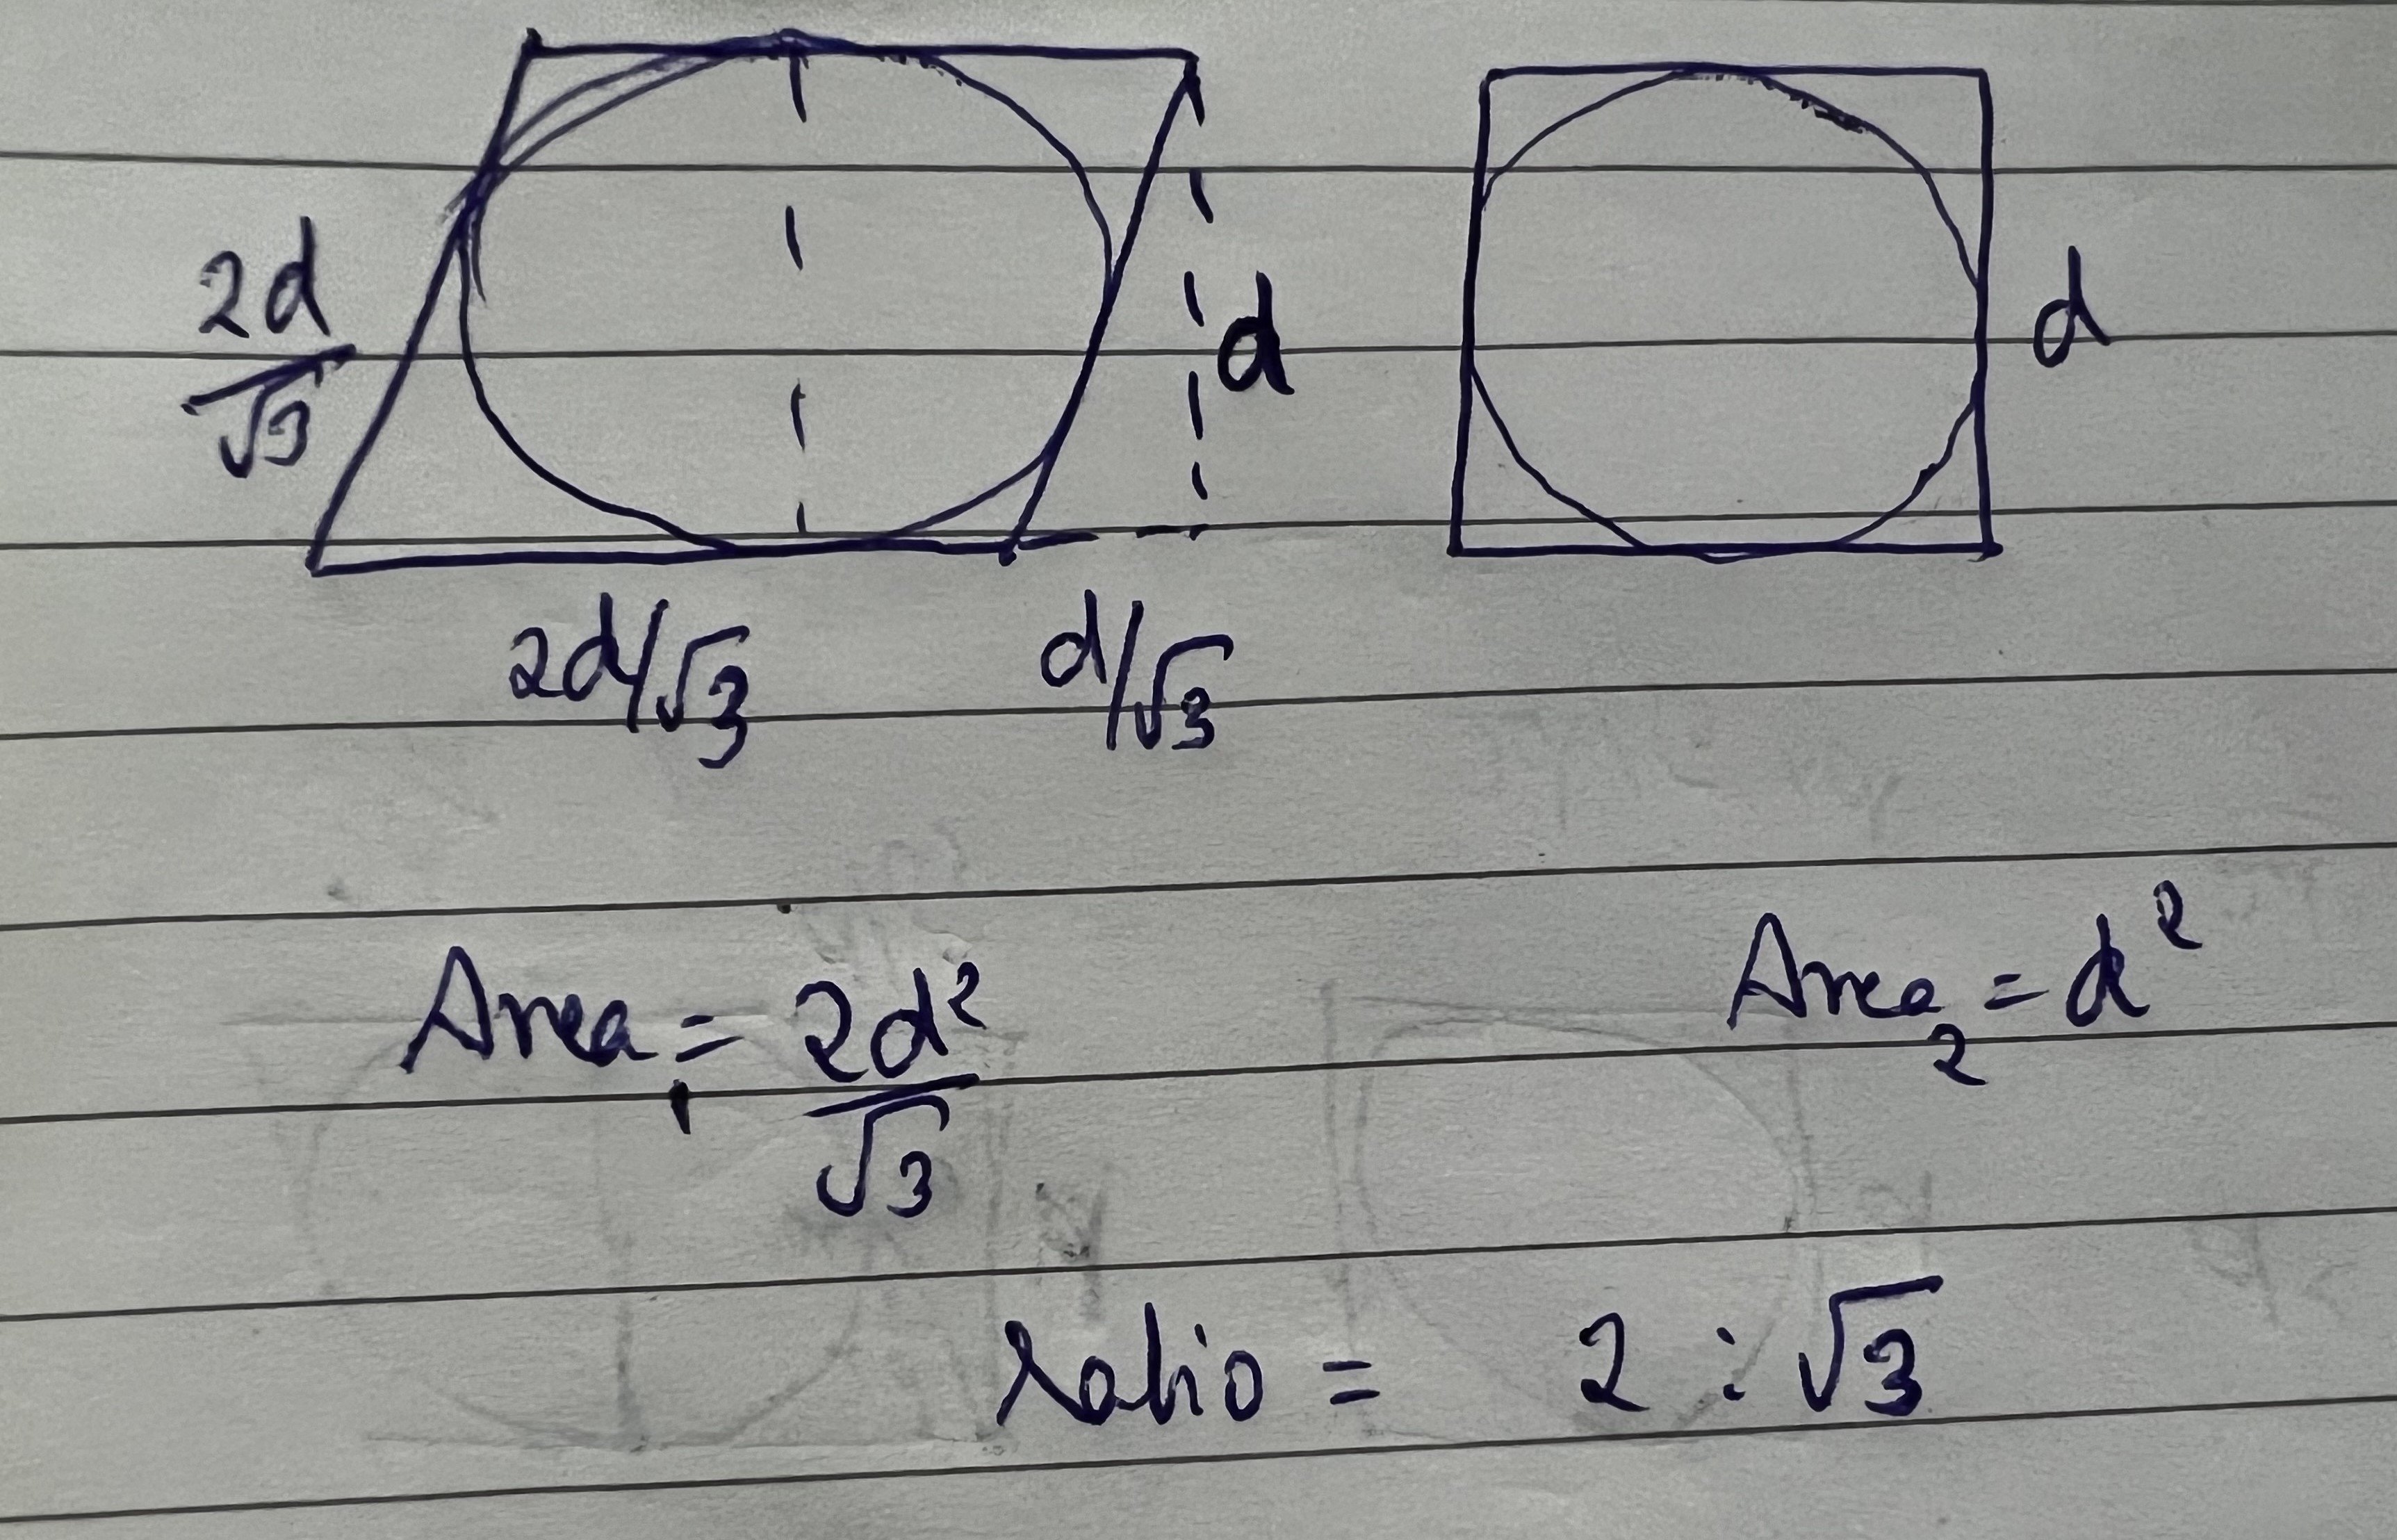 2d/√3
d
d
2d/√3
d/√3
Area₁ = 2d²/√3
Area₂ = d²
ratio = 2 : √3